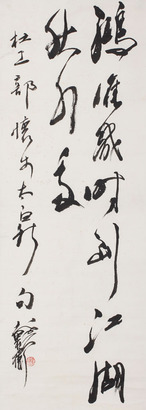 鴻雁几時到江湖
秋水多
杜工部懷李太白詩句